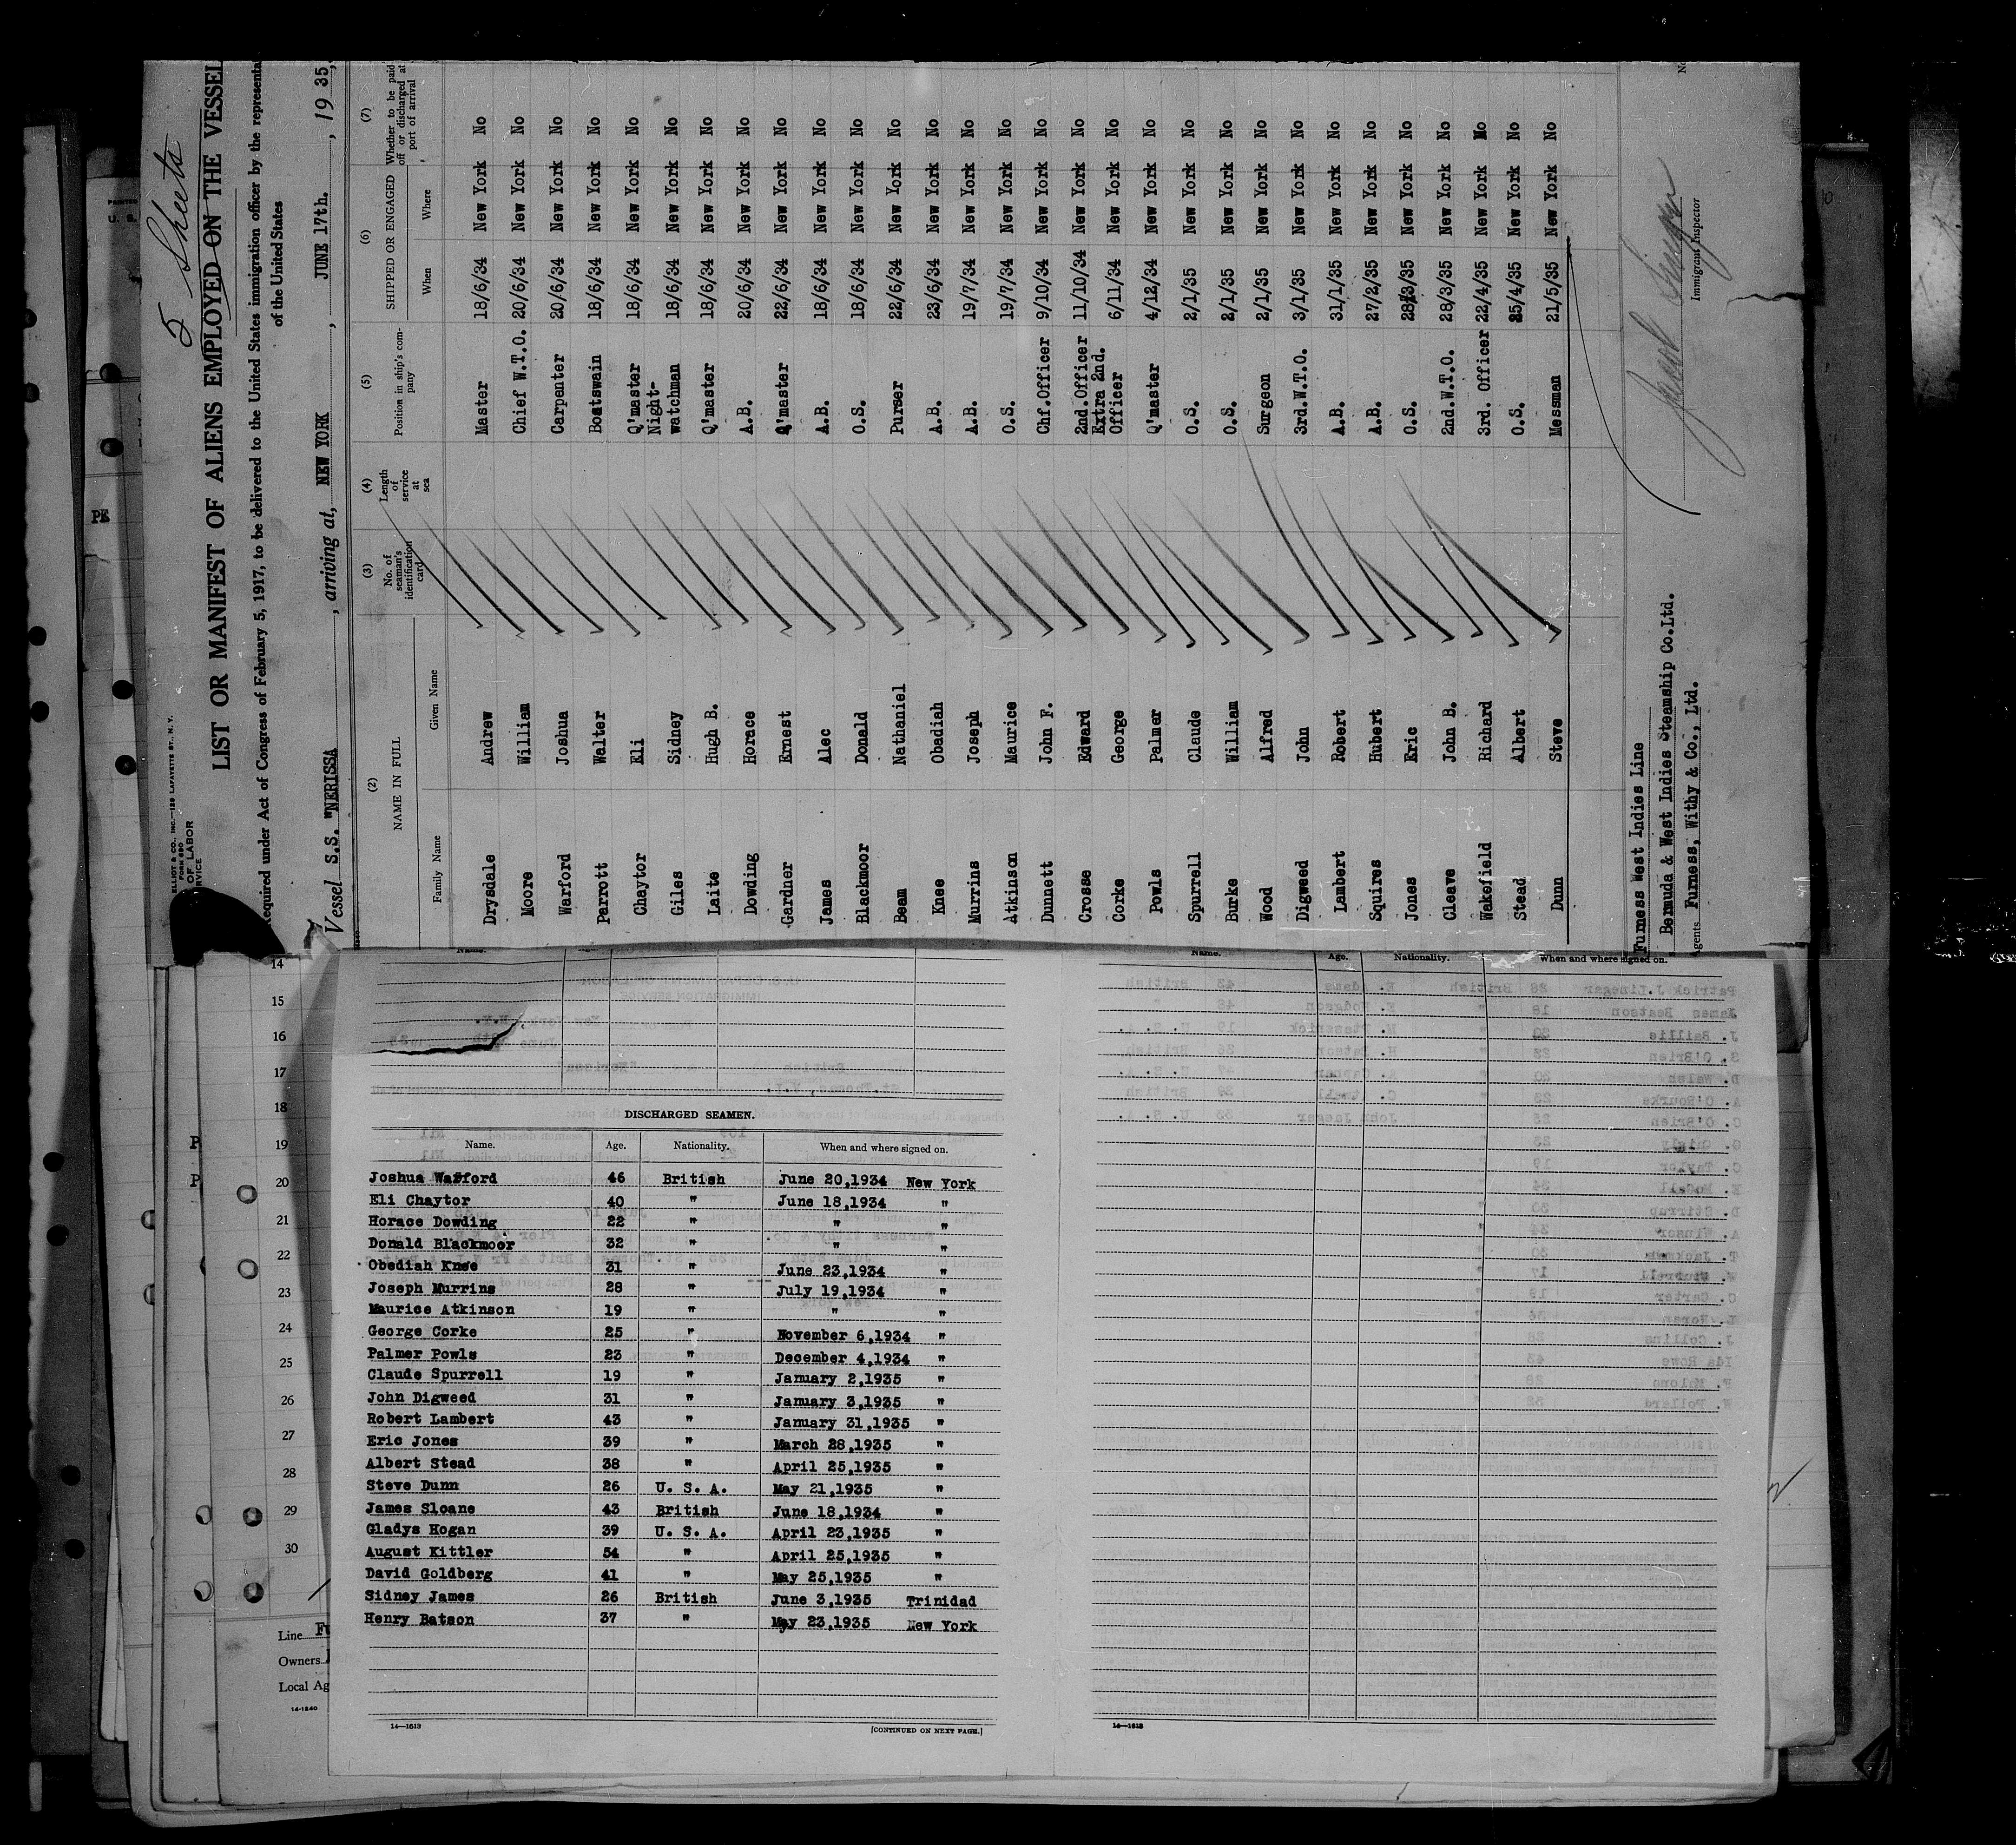 5 Sheets
ELLIOT & CO., INC.—128 LAFAYETTE ST., N. Y.
FORM 680
OF LABOR
SERVICE
LIST OR MANIFEST OF ALIENS EMPLOYED ON THE VESSEL
Required under Act of Congress of February 5, 1917, to be delivered to the United States immigration officer by the representa
of the United States
Vessel S.S. "NERISSA , arriving at, NEW YORK , JUNE 17th. , 1935,
(2) (3) (4) (5) (6) (7)
NAME IN FULL No. of seaman's identification card Length of service at sea Position in ship's company SHIPPED OR ENGAGED Whether to be paid off or discharged at port of arrival
Family Name Given Name When Where
Drysdale Andrew Master 18/6/34 New York No
Moore William Chief W.T.O. 20/6/34 New York No
Warford Joshua Carpenter 20/6/34 New York No
Parrott Walter Boatswain 18/6/34 New York No
Chaytor Eli Q'master 18/6/34 New York No
Giles Sidney Night-watchman 18/6/34 New York No
Laite Hugh B. Q'master 18/6/34 New York No
Dowding Horace A.B. 20/6/34 New York No
Gardner Ernest Q'master 22/6/34 New York No
James Alec A.B. 18/6/34 New York No
Blackmoor Donald O.S. 18/6/34 New York No
Beam Nathaniel Purser 22/6/34 New York No
Knee Obadiah A.B. 23/6/34 New York No
Murrins Joseph A.B. 19/7/34 New York No
Atkinson Maurice O.S. 19/7/34 New York No
Dunnett John F. Chf.Officer 9/10/34 New York No
Crosse Edward 2nd.Officer 11/10/34 New York No
Corke George Extra 2nd. Officer 6/11/34 New York No
Powls Palmer Q'master 4/12/34 New York No
Spurrell Claude O.S. 2/1/35 New York No
Burke William O.S. 2/1/35 New York No
Wood Alfred Surgeon 2/1/35 New York No
Digweed John 3rd.W.T.O. 3/1/35 New York No
Lambert Robert A.B. 31/1/35 New York No
Squires Hubert A.B. 27/2/35 New York No
Jones Eric O.S. 28/3/35 New York No
Cleave John B. 2nd.W.T.O. 28/3/35 New York No
Wakefield Richard 3rd. Officer 22/4/35 New York No
Stead Albert O.S. 25/4/35 New York No
Dunn Steve Messman 21/5/35 New York No
Furness West Indies Line
Bermuda & West Indies Steamship Co.Ltd.
Agents Furness, Withy & Co., Ltd.
Immigrant Inspector
14
15
16
17
18
19
20
21
22
23
24
25
26
27
28
29
30
Line
Owners
Local Ag
14-1240
DISCHARGED SEAMEN.
Name. Age. Nationality. When and where signed on.
Joshua Warford 46 British June 20,1934 New York
Eli Chaytor 40 " June 18,1934 "
Horace Dowding 22 " " "
Donald Blackmoor 32 " " "
Obediah Knee 31 " June 23,1934 "
Joseph Murrins 28 " July 19,1934 "
Maurice Atkinson 19 " " "
George Corke 25 " November 6,1934 "
Palmer Powls 23 " December 4,1934 "
Claude Spurrell 19 " January 2,1935 "
John Digweed 31 " January 3,1935 "
Robert Lambert 43 " January 31,1935 "
Eric Jones 39 " March 28,1935 "
Albert Stead 38 " April 25,1935 "
Steve Dunn 26 U. S. A. May 21,1935 "
James Sloane 43 British June 18,1934 "
Gladys Hogan 39 U. S. A. April 23,1935 "
August Kittler 54 " April 25,1935 "
David Goldberg 41 " May 25,1935 "
Sidney James 26 British June 3,1935 Trinidad
Henry Batson 37 " May 23,1935 New York
14—1613 [CONTINUED ON NEXT PAGE.]
Name. Age. Nationality. When and where signed on.
14—1613